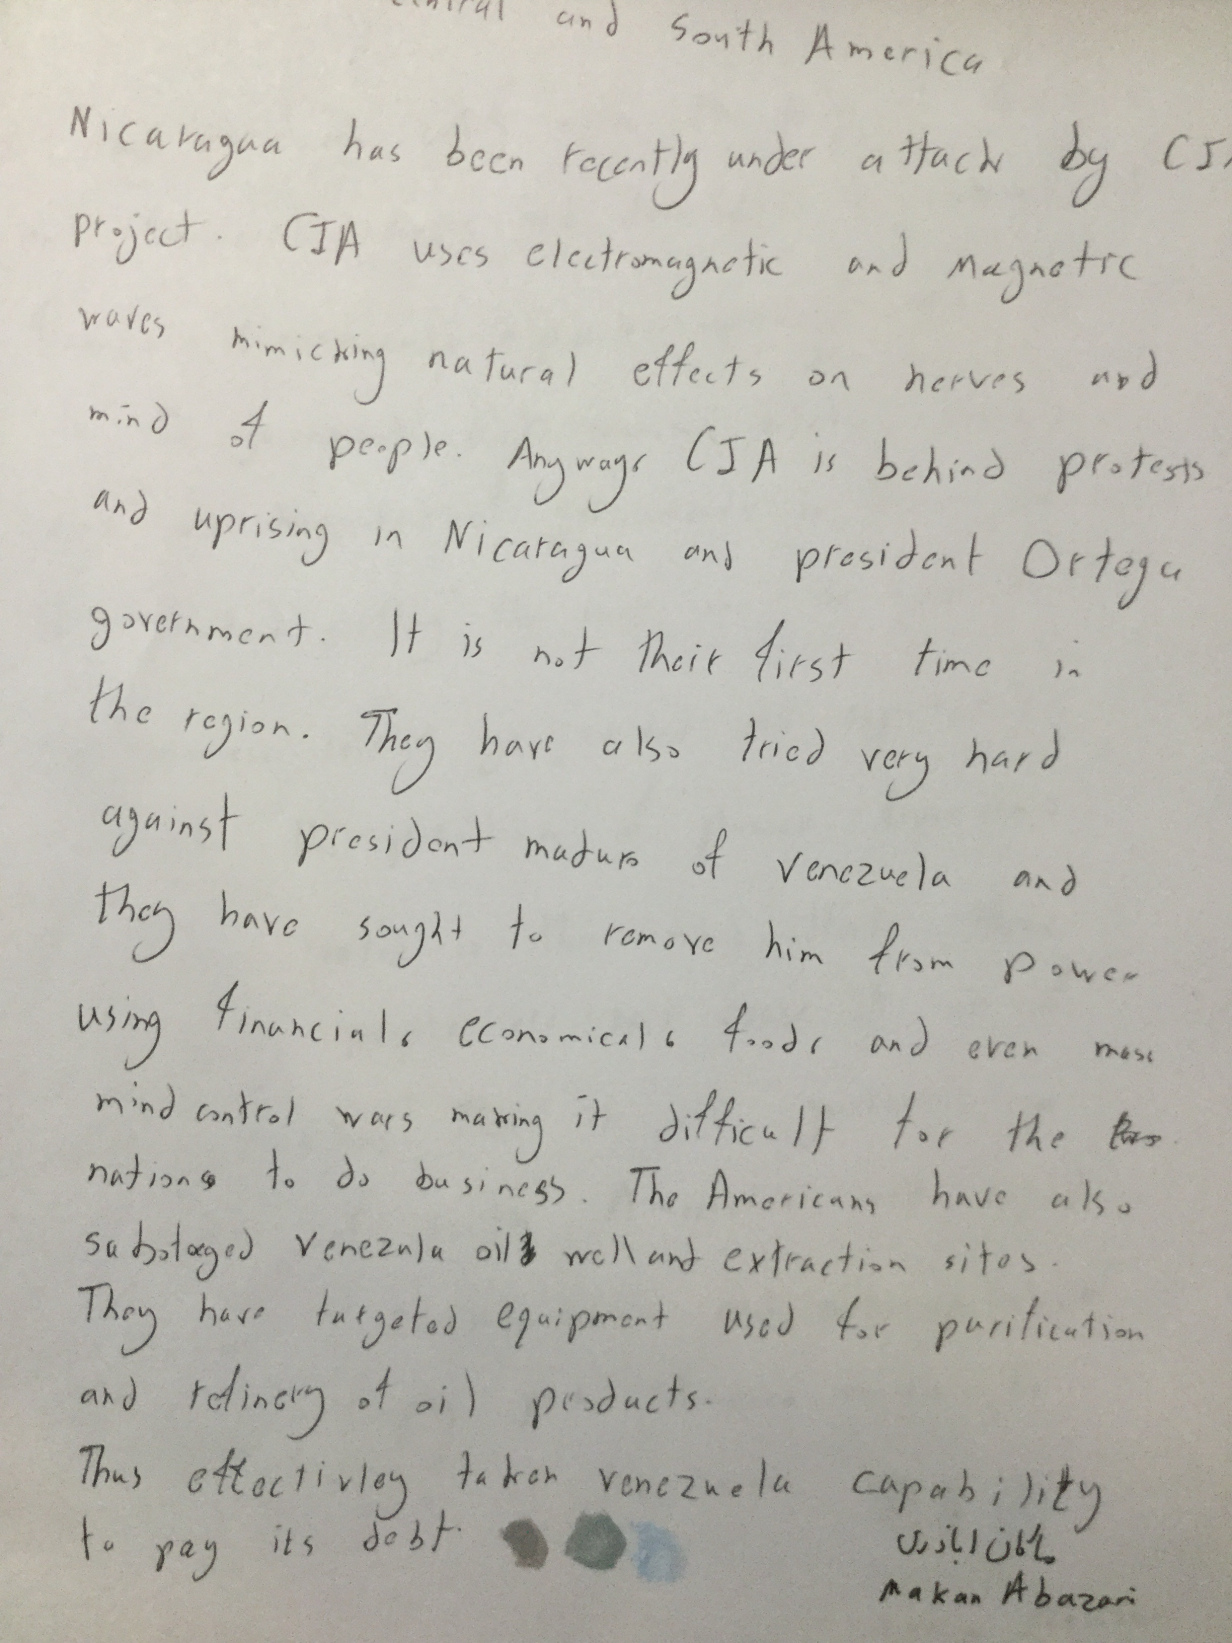 and South America
Nicaragua has been recently under attack by CIA
project. CIA uses electromagnetic and magnetic
waves mimicking natural effects on nerves and
mind of people. Anyways CIA is behind protests
and uprising in Nicaragua and president Ortega
government. It is not their first time in
the region. They have also tried very hard
against president maduro of venezuela and
they have sought to remove him from power
using financial, economical, foods and even mass
mind control wars making it difficult for the
nations to do business. The Americans have also
sabotaged venezula oil well and extraction sites.
They have targeted equipment used for purification
and refinery of oil products.
Thus effectivley taken venezuela capability
to pay its debt.
ماکان اباذری
Makan Abazari